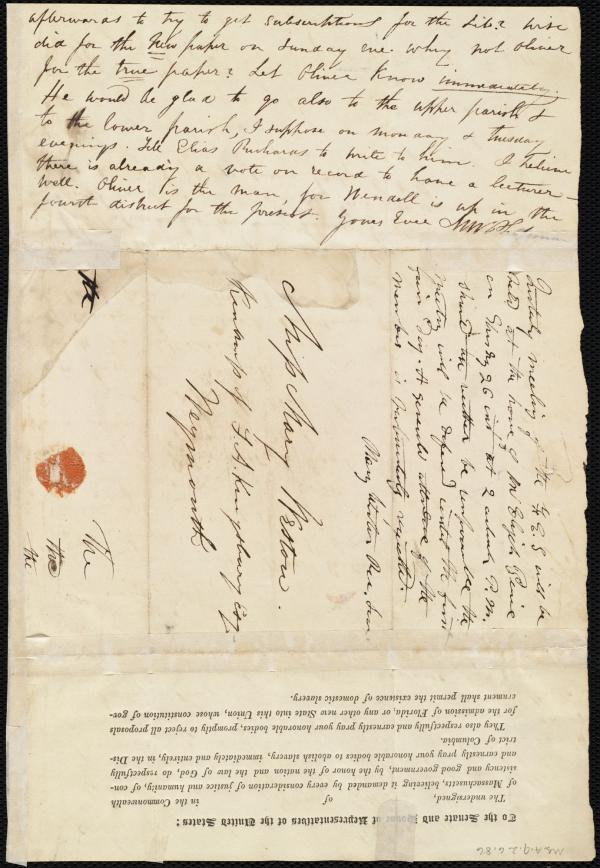 afterwards to try to get subscriptions for the Lib? Wise
did for the New paper on Sunday eve. why not Oliver
for the true paper? Let Oliver know immediately.
He would be glad to go also to the upper parish &
to the lower parish, I suppose on monday & tuesday
evenings. Tell Elias Richards to write to him. I believe
there is already a vote on record to have a lecturer—
well. Oliver is the man, for Wendell is up in the
fourth district for the present. Yours Ever
Quarterly meeting of the F.E.S will be
held at the house of Mr Elijah
on Thursday 26 inst at 2 oclock P.M.
should the weather be unfavorable the
meeting will be defered until the first
fair day. A general attendance of the
members is particularly requested.
Mary Weston Rec. Sec
Miss Mary Weston.
Kindness of F.A. Kingsbury Esq
Weymouth
the
The
the
the
To the Senate and House of Representatives of the United States:
The undersigned, of in the Commonwealth
of Massachusetts, believing it demanded by every consideration of justice and humanity, of con-
sistency and good government, by the honor of the nation and the law of God, do respectfully
and earnestly pray your honorable bodies to abolish slavery, immediately and entirely, in the Dis-
trict of Columbia.
They also respectfully and earnestly pray your honorable bodies, promptly to reject all proposals
for the admission of Florida, or any other new State into this Union, whose constitution of gov-
ernment shall permit the existence of domestic slavery.
Ms.A.9.2.6.86